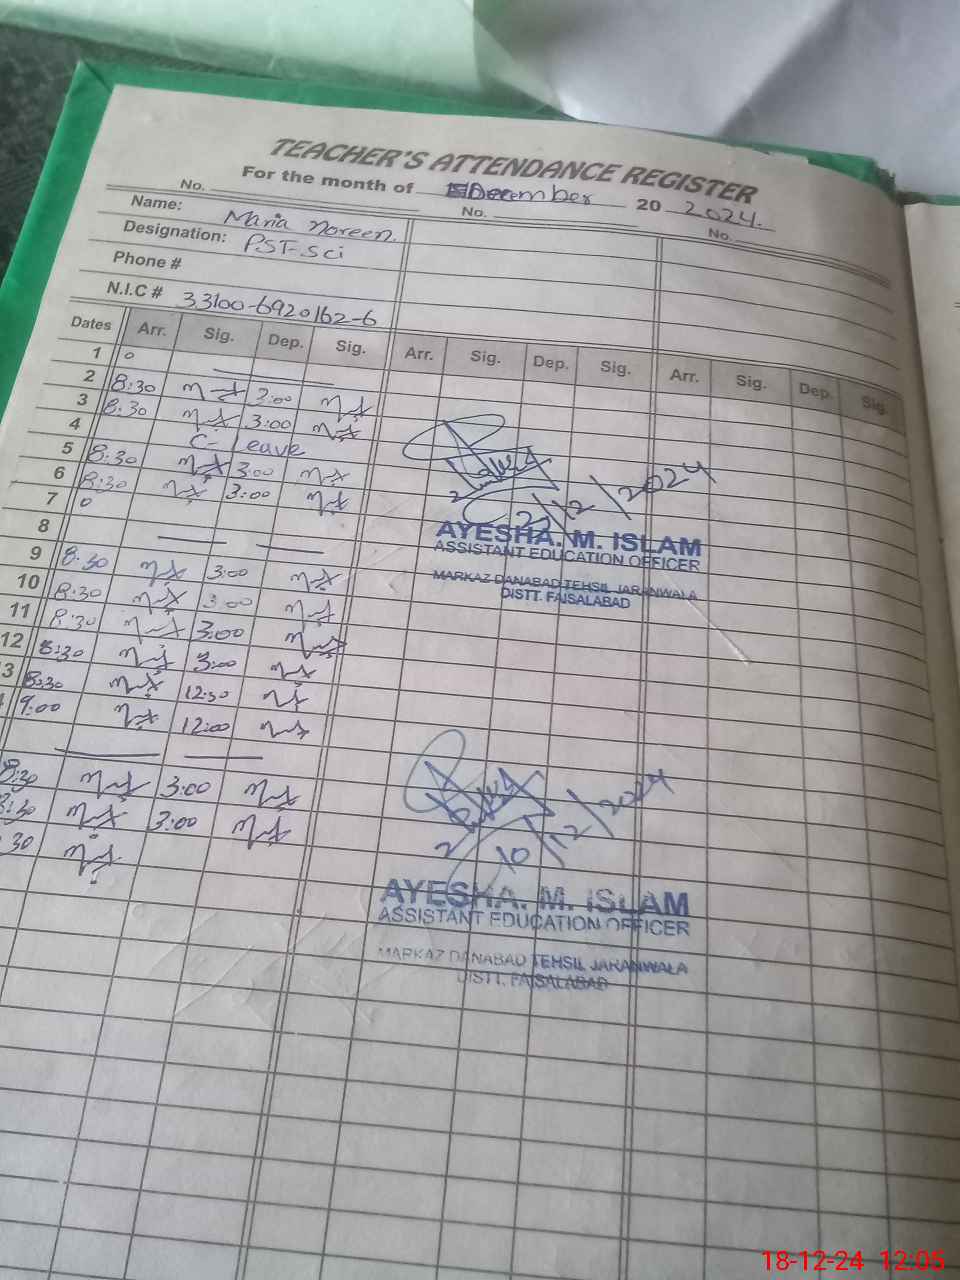 TEACHER'S ATTENDANCE REGISTER
For the month of December 20 2024.
No. No. No.
Name: Maria Noreen.
Designation: PST-Sci
Phone #
N.I.C # 33100-6920162-6
Dates Arr. Sig. Dep. Sig. Arr. Sig. Dep. Sig. Arr. Sig. Dep. Sig.
1
2 8:30 3:00
3 8:30 3:00
4 C-Leave
5 8:30 3:00
6 8:30 3:00
7
8
9 8:30 3:00
10 8:30 3:00
11 8:30 3:00
12 8:30 3:00
3 8:30 12:30
9:00 12:00
8:30 3:00
8:30 3:00
30
12/2024
AYESHA. M. ISLAM
ASSISTANT EDUCATION OFFICER
MARKAZ DANABAD TEHSIL JARANWALA
DISTT. FAISALABAD
10/12/2024
AYESHA. M. ISLAM
ASSISTANT EDUCATION OFFICER
MARKAZ DANABAD TEHSIL JARANWALA
DISTT. FAISALABAD
18-12-24 12:05